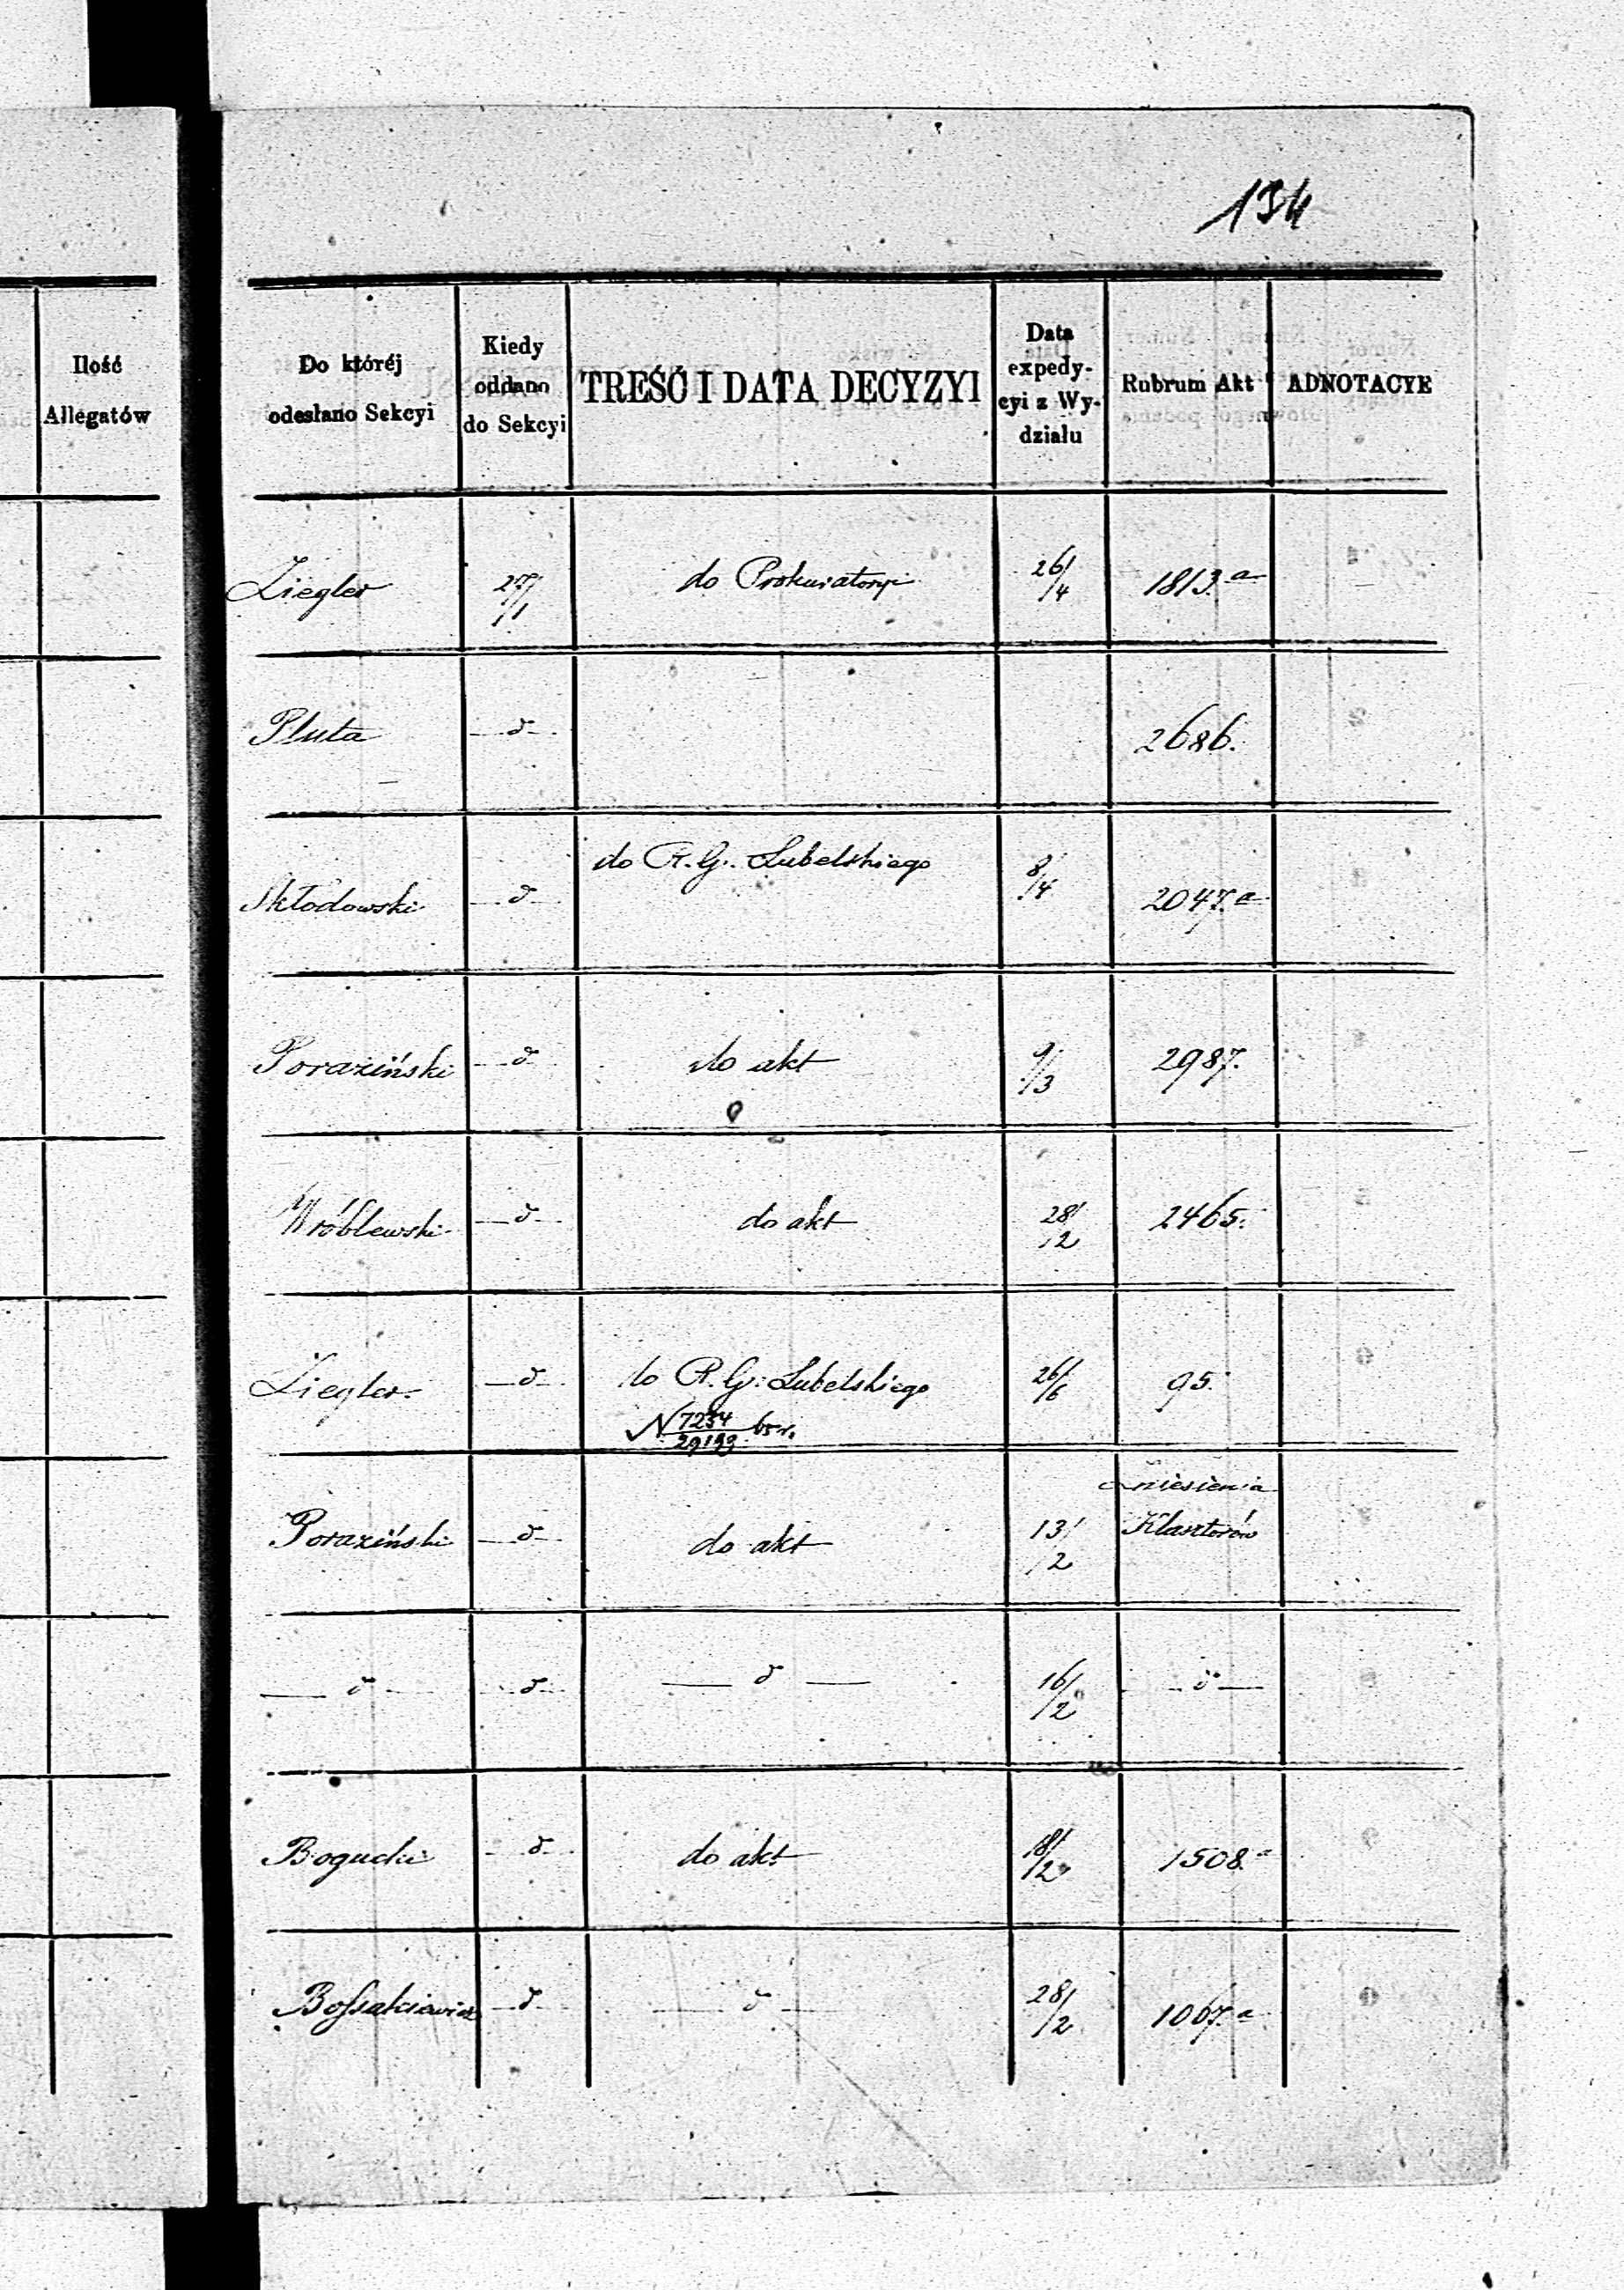 134
Ilość
Allegatów
Do któréj
odesłano Sekcyi
Kiedy
oddano
do Sekcyi
TREŚĆ I DATA DECYZYI
Data
expedy-
cyi z Wy-
działu
Rubrum Akt
ADNOTACYE
Ziegler 27/1 do Prokuratoryi 26/4 1813.a
Pluta — d — 2686.
Skłodowski — d — do R. G. Lubelskiego 8/4 2047.a
Poraziński — d — do akt 9/3 2987.
Wróblewski — d — do akt 28/2 2465.
Ziegler — d — do R. G. Lubelskiego 26/6 95.
N 7234/29193
Poraziński — d — do akt 13/2 zniesienia
Klasztorów
— d — — d — — d — 16/2 — d —
Bogucki — d — do akt 18/2 1508.a
Bossakiewicz — d — — d — 28/2 1067.a